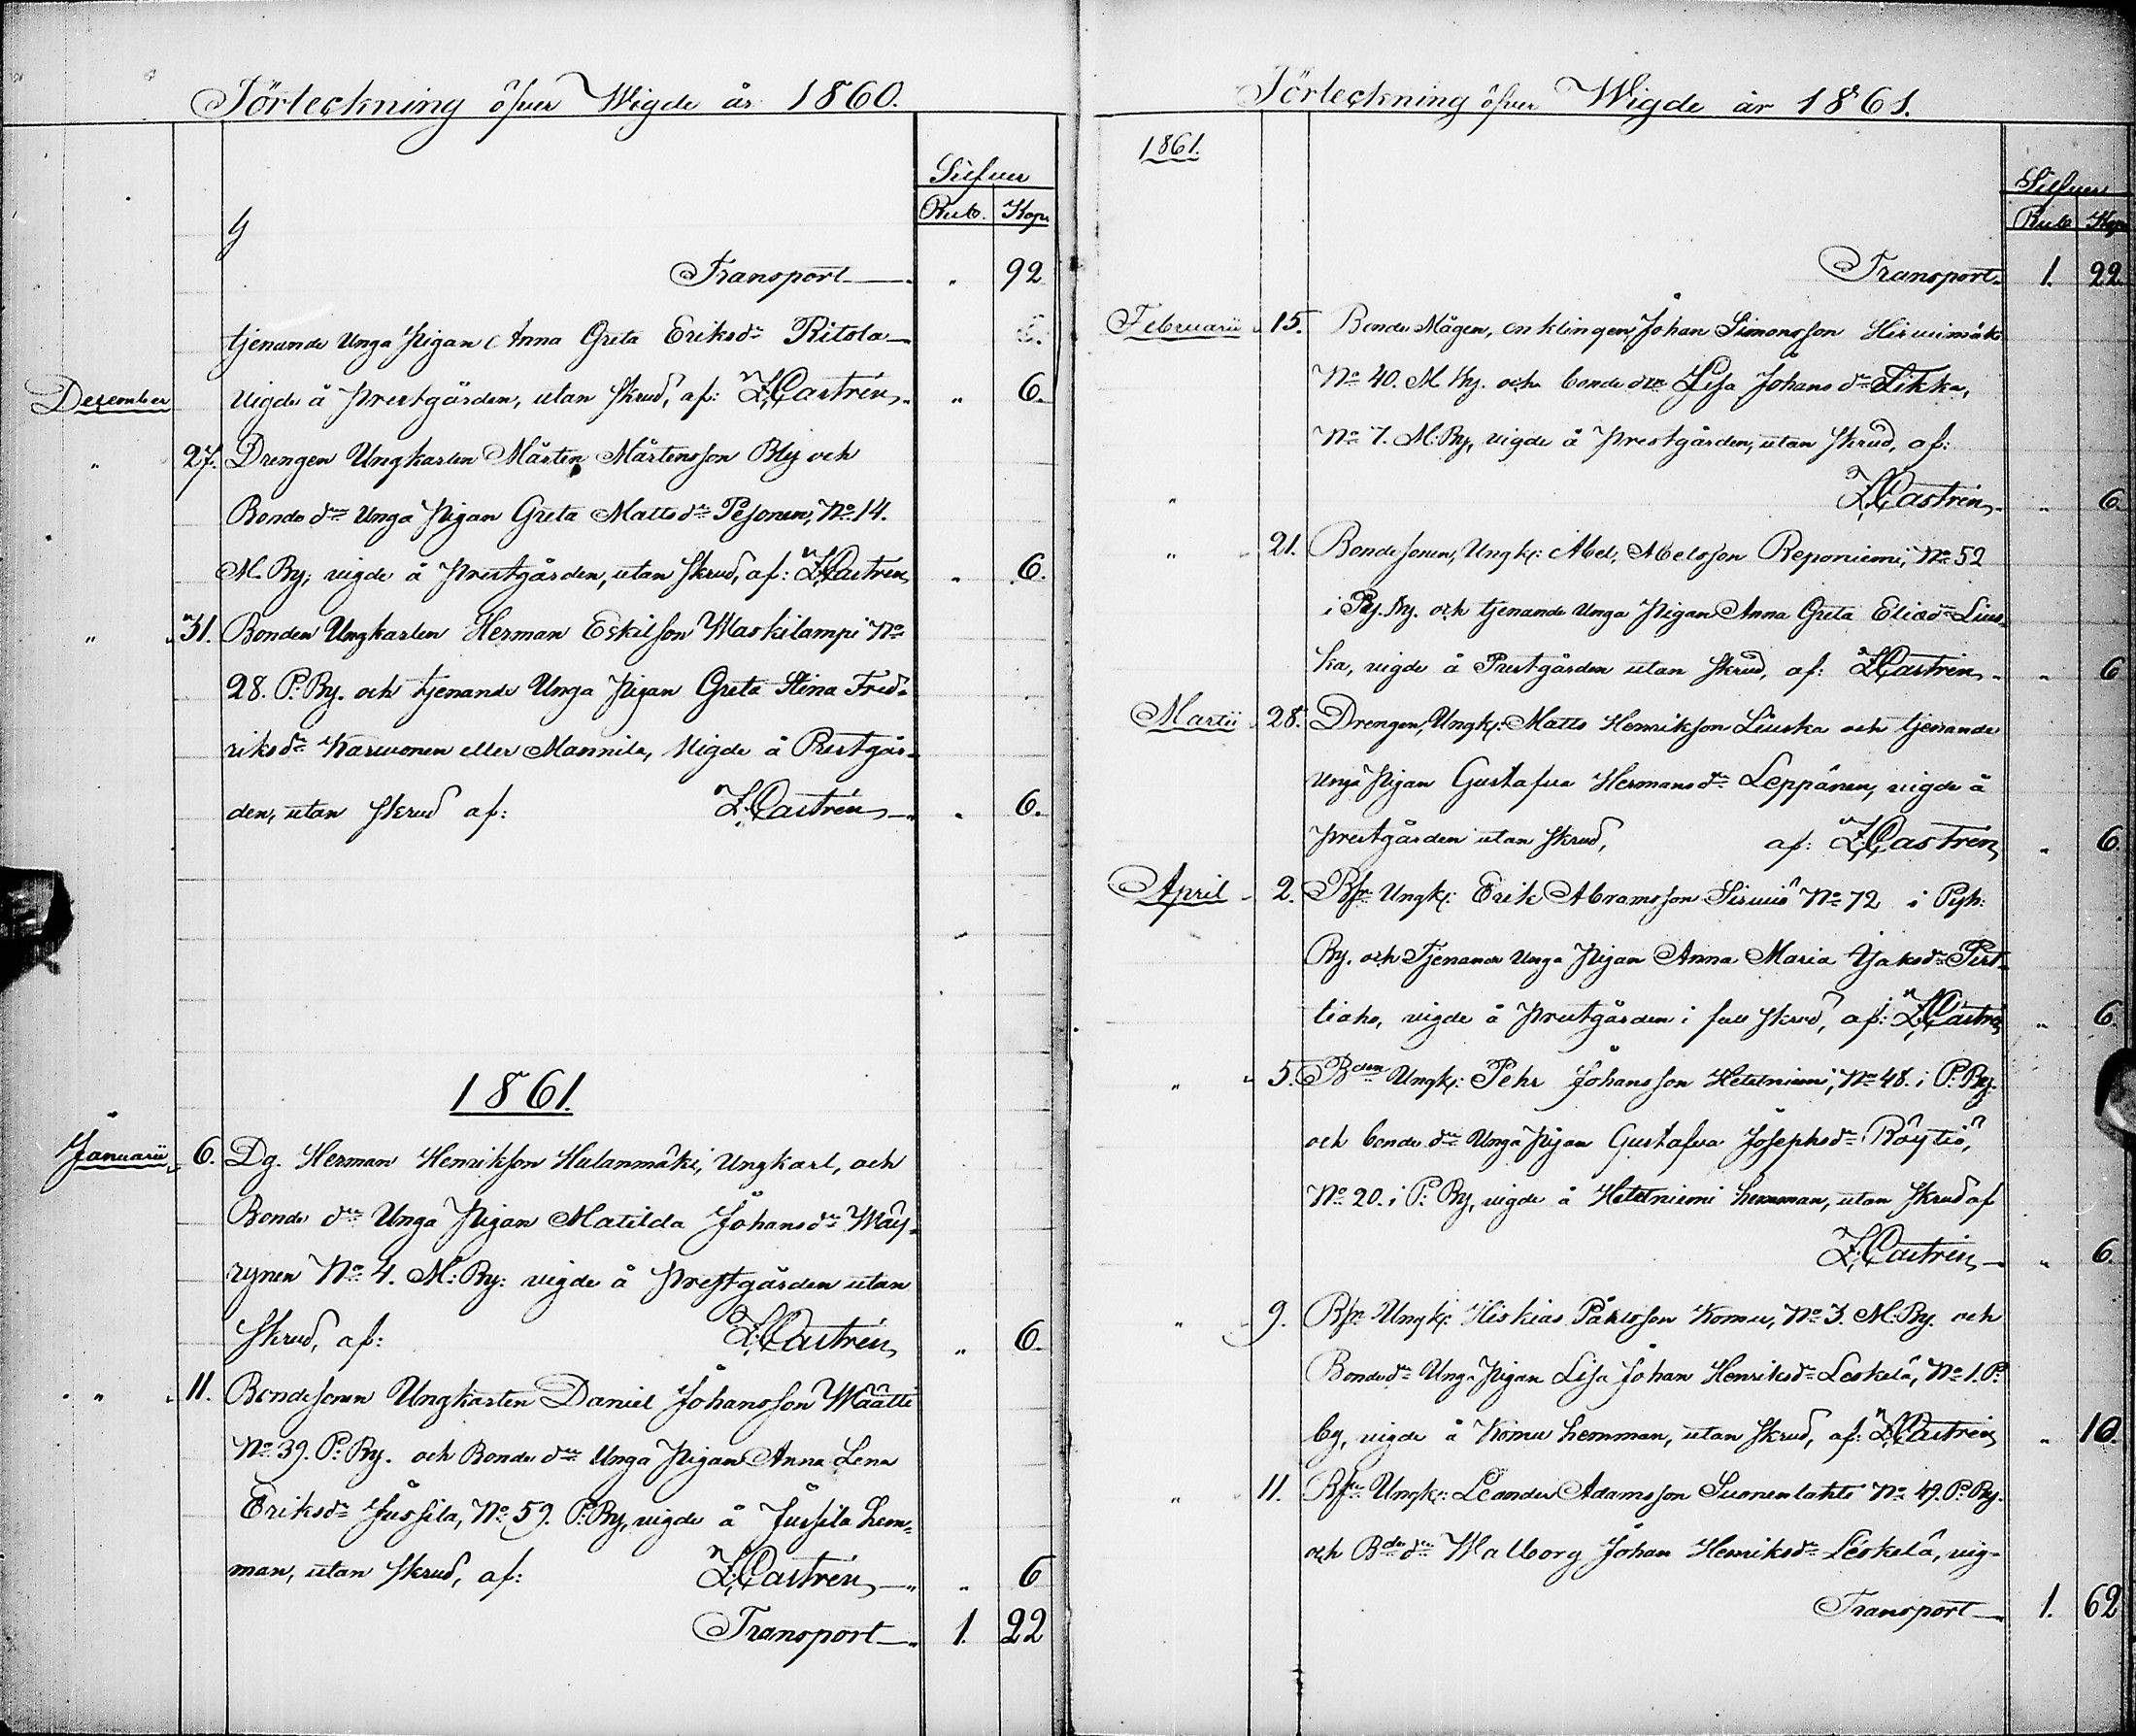 Förteckning öfver Wigde år 1860.
Silfver
Rub. Kop.
Transport — " 92
tjenande Unga Pigan Anna Greta Eriksdr Ritola — 6.
December vigde å Prestgården, utan skrud, af: Z. Castrén, " 6.
" 27. Drengen Ungkarlen Mårten Mårtensson Bly och
Bonde dr Unga Pigan Greta Mattsdr Pesonen, No 14.
M. By, vigde å Prestgården, utan skrud, af: Z. Castrén " 6.
" 31. Bonden Ungkarlen Herman Eskilsson Waskilampi No
28. P. By. och tjenande Unga Pigan Greta Stina Fred-
riksdr Karvonen eller Mannila, Vigde å Prestgår-
den, utan skrud af: Z. Castrén — " 6.
1861.
Januarii 6. Dg. Herman Henriksson Hulanmäki, Ungkarl, och
Bonde dr Unga Pigan Matilda Johansdr Wäy-
rynen No 4. M: By: vigde å Prestgården utan
skrud, af: Z. Castrén " 6.
" 11. Bondesonen Ungkarlen Daniel Johansson Määttä
No 39. P. By. och Bonde dr Unga Pigan Anna Lena
Eriksdr Jussila, No 59. P. By, vigde å Jussila hem-
man, utan skrud, af: Z. Castrén — " 6
Transport — 1. 22
Förteckning öfver Wigde år 1861.
1861.
Silfver
Rub Kop
Transport. 1. 22.
Februarii 15. Bonde Mågen, enklingen Johan Simonsson Hirvimäki
No 40. M. By. och bonde dr Lisa Johansdr Tikka,
No 7. M. By, vigde å Prestgården, utan skrud, af:
" Z. Castrén " 6.
" 21. Bondesonen, Ungk: Abel Abelsson Reponiemi, No 52
i Py. By. och tjenande Unga Pigan Anna Greta Eliasdr Lius-
ka, vigde å Prestgården utan skrud, af: Z. Castrén " 6
Martii 28. Drengen, Ungk: Matts Henriksson Liuska och tjenande
Unga Pigan Gustafva Hermansdr Leppänen, vigde å
Prestgården utan skrud, af: Z. Castrén " 6.
April 2. Bsn Ungk: Erik Abramsson Sirviö No 72 i Pyh:
By. och Tjenande Unga Pigan Anna Maria Jaksdr Pert-
tiaho, vigde å Prestgården i full skrud, af: Z. Castrén " 6.
" 5. Bden Ungk: Pehr Johansson Hetetniemi, No 48. i P. By.
och bonde dr Unga Pigan Gustafva Josephsdr Röytiö,
No 20. i P: By, vigde å Hetetniemi hemman, utan skrud af
Z. Castrén — " 6.
" 9. Bsn Ungk: Hiskias Påhlsson Komu, No 3. M. By. och
Bondedr Unga Pigan Lisa Johan Henriksdr Leskelä, No 1. P.
by, vigde å Komu hemman, utan skrud, af: Z. Castrén " 10.
" 11. Bsn Ungk: Leander Adamsson Suonenlahti No 49. P. By.
och Bde dr Walborg Johan Henriksdr Leskelä, vig-
Transport — 1. 62